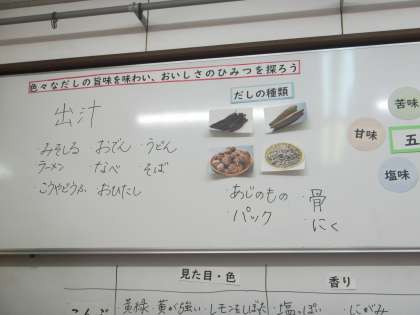 色々なだしの旨味を味わい、おいしさのひみつを探ろう
出汁
だしの種類
みそしる おでん ・うどん
ラーメン ・なべ ・そば
こうやどうふ おひたし
・あじのもの ・骨
・パック ・にく
苦味
甘味
五
塩味
見た目・色
香り
こんぶ
黄緑・黄が強い
・塩っぽい
・にがみ